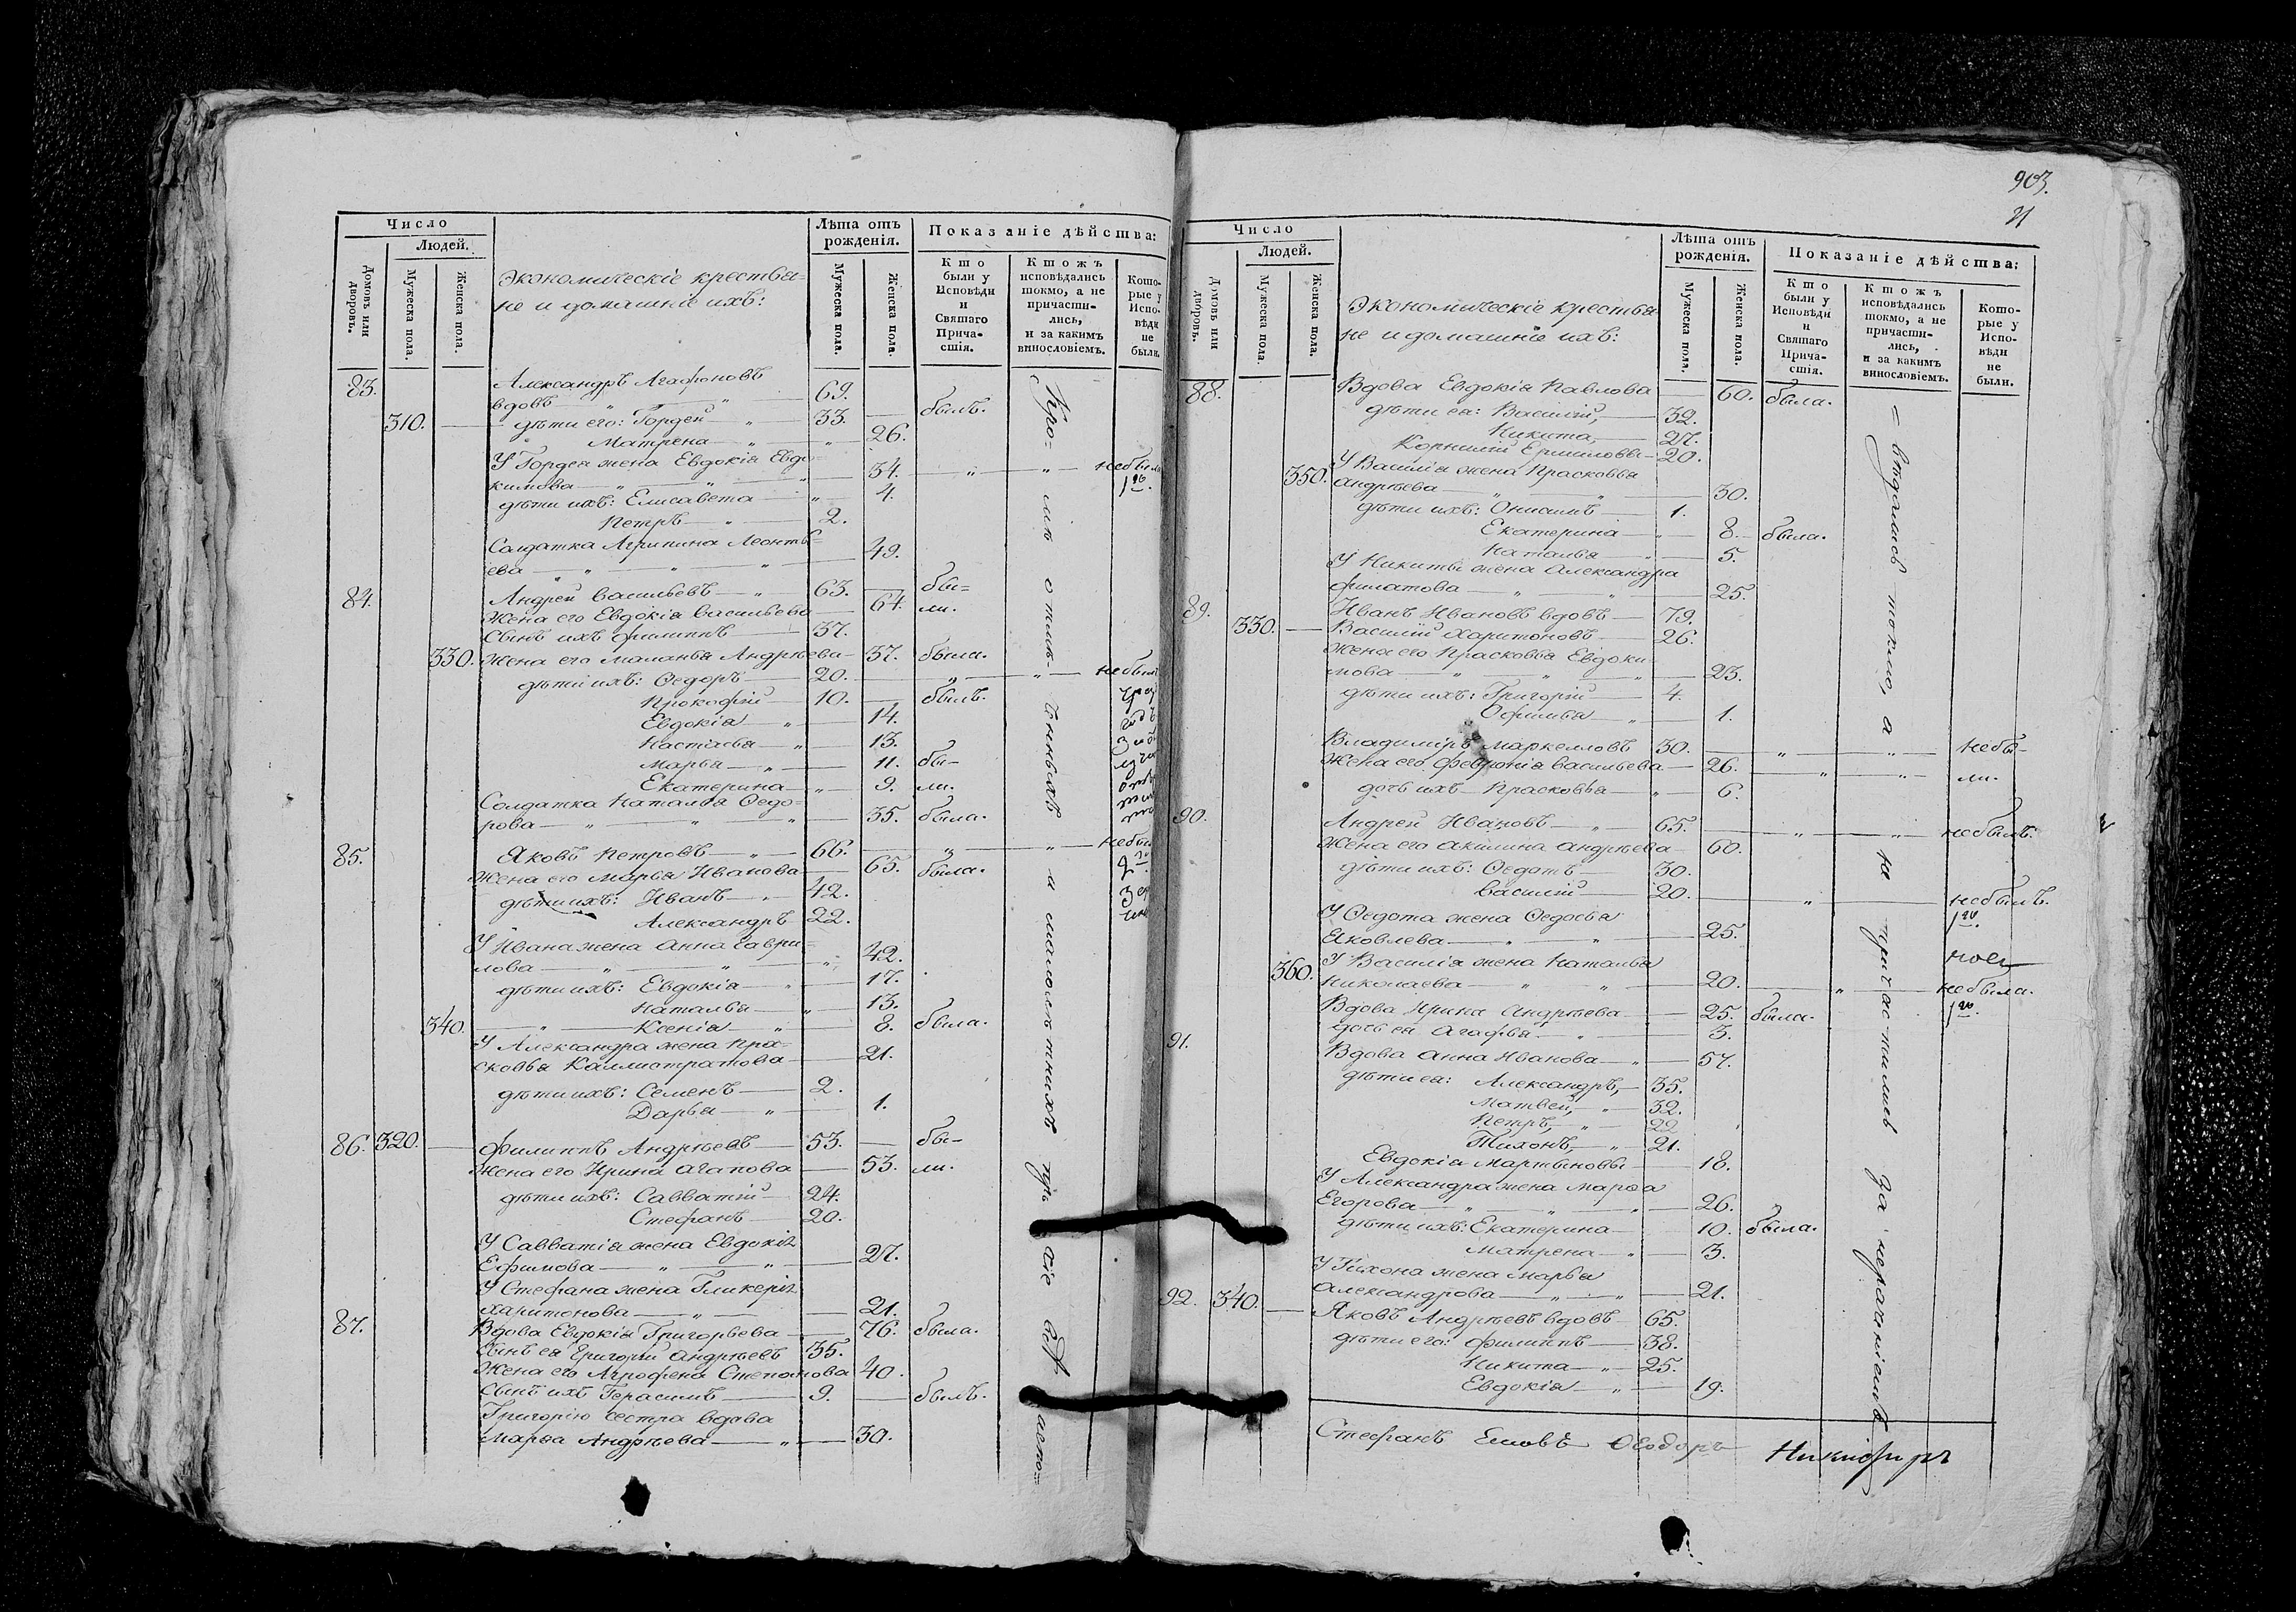 Число
Людей.
Домовъ или дворовъ.
Мужеска пола.
Женска пола.
Экономическіе крестья=
не и домашніе ихъ:
Лѣта отъ рожденія.
Мужеска пола.
Женска пола.
Показаніе дѣйства:
Кто были у Исповѣди и Святаго Причастія.
Кто жъ исповѣдались токмо, а не причасти-лись, и за какимъ винословіемъ.
Которые у Исповѣди не были.
83. Александръ Агафоновъ
вдовъ 69.
310. дѣти его: Гордей 33. былъ.
Матрена 26.
У Гордея жена Евдокія Евдо=
кимова 34. небыла
дѣти ихъ: Елисавета 4.
Петръ 2.
Солдатка Агрипина Леонть=
ева 49.
84. Андрей Васильевъ 63. бы=
Жена его Евдокія Васильева 64. ли.
Сынъ ихъ Филиппъ 37.
330. Жена его Маланья Андрѣева 37. была.
дѣти ихъ: Ѳедоръ 20. небылъ
Прокофій 10. былъ.
Евдокія 14.
Настасья 13.
Марья 11. бы-
Екатерина 9. ли.
Солдатка Наталья Ѳедо=
рова 35. была.
85. Яковъ Петровъ 66. небылъ
Жена его Марья Иванова 65. была.
дѣти ихъ: Иванъ 42.
Александръ 22.
У Ивана жена Анна Гаври=
лова 42.
дѣти ихъ: Евдокія 17.
Наталья 13.
340. Ксенія 8. была.
У Александра жена Пра=
сковья Каллистратова 21.
дѣти ихъ: Семенъ 2.
Дарья 1.
86. 320. Филиппъ Андрѣевъ 53. бы-
Жена его Ирина Агапова 53. ли.
дѣти ихъ: Савватій 24.
Стефанъ 20.
У Савватія жена Евдокія
Ефимова 27.
У Стефана жена Гликерія
Харитонова 21.
87. Вдова Евдокія Григорьева 76. была.
Сынъ ея Григорій Андрѣевъ 35.
Жена его Агрофена Степанова 40.
Сынъ ихъ Герасимъ 9. былъ.
Григорію сестра вдова
Марѳа Андрѣева 30.
903.
Число
Людей.
Домовъ или дворовъ.
Мужеска пола.
Женска пола.
Экономическіе крестья
не и домашніе ихъ:
Лѣта отъ рожденія.
Мужеска пола.
Женска пола.
Показаніе дѣйства:
Кто были у Исповѣди и Святаго Причастія.
Кто жъ исповѣдались токмо, а не причасти-лись, и за какимъ винословіемъ.
Которые у Исповѣди не были.
88. Вдова Евдокія Павлова 60. была.
дѣти ея: Василій, 32.
Никита, 27.
Корнилій Ермиловы 20.
350. У Василія жена Прасковья
Андрѣева 30.
дѣти ихъ: Онисимъ 1.
Екатерина 8. была.
Наталья 5.
У Никиты жена Александра
Филатова 25.
89. Иванъ Ивановъ вдовъ 79.
330. Василій Харитоновъ 26.
Жена его Прасковья Евдоки
мова 23.
дѣти ихъ: Григорій 4.
Офимья 1.
Владиміръ Маркелловъ 30. небы-
Жена его Февронія Васильева 26. ли.
дочь ихъ Прасковья 6.
90. Андрей Ивановъ 65. небылъ.
Жена его Акилина Андрѣева 60.
дѣти ихъ: Ѳедотъ 30.
Василій 20. небылъ.
У Ѳедота жена Ѳедосья
Яковлева 25.
360. У Василія жена Наталья
Николаева 20. небыла.
Вдова Ирина Андрѣева 25. была.
дочь ея Агафья 3.
91. Вдова Анна Иванова 57.
дѣти ея: Александръ, 35.
Матвей, 32.
Петръ, 22
Тихонъ, 21.
Евдокія Мартыновы 18.
У Александра жена Марѳа
Егорова 26.
дѣти ихъ: Екатерина 10. была.
Матрена 3.
У Тихона жена Марья
Александрова 21.
92. 340. Яковъ Андрѣевъ вдовъ 65.
дѣти его: Филиппъ 38.
Никита 25.
Евдокія 19.
- вѣдались токмо, а не причастились за нераченіемъ
Стефанъ Ѳеодоръ Никифоръ